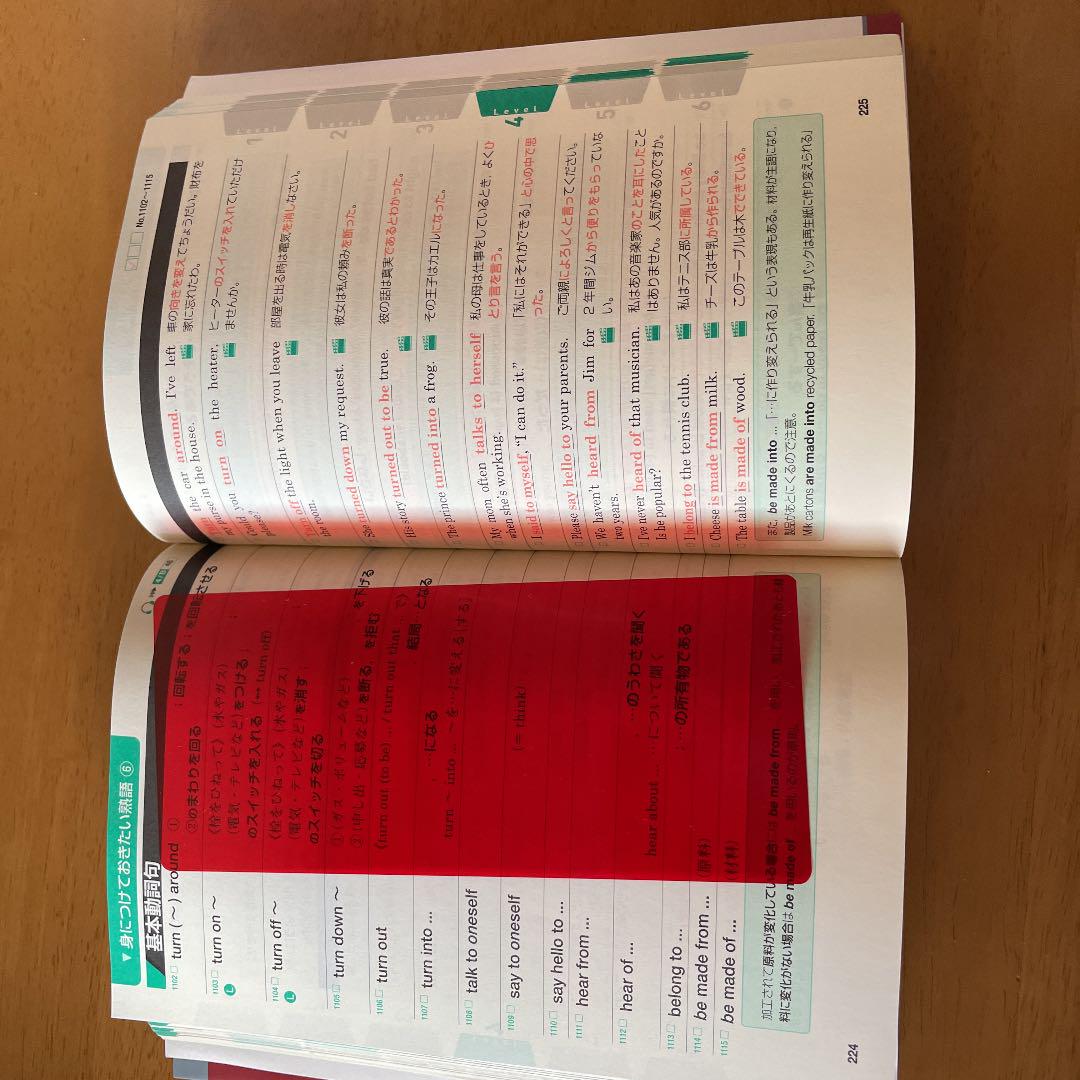 ▼身につけておきたい熟語⑥
基本動詞句
1102 turn (～) around ①
回転する；を回転させる
②のまわりを回る
1103 turn on ～
《栓をひねって》(水やガス)
(電気・テレビなど)をつける；
のスイッチを入れる (↔ turn off)
1104 turn off ～
《栓をひねって》(水やガス)
(電気・テレビなど)を消す；
のスイッチを切る
1105 turn down ～
①(ガス・ボリュームなど) を下げる
②(申し出・恩恵など)を断る，を拒む
1106 turn out
《turn out (to be) … / turn out that … で》
結局 となる
1107 turn into …
…になる
turn ～ into … ～を…に変える[する]
1108 talk to oneself
1109 say to oneself
(= think)
1110 say hello to …
1111 hear from …
1112 hear of …
…のうわさを聞く
hear about … …について聞く
1113 belong to …
…の所有物である
1114 be made from …
(原料)
1115 be made of …
(材料)
加工されて原料が変化している場合には be made from
料に変化がない場合は be made of を用いるのが原則。
224
No.1102～1115
the car around. I've left
my purse in the house.
車の向きを変えてちょうだい。財布を
家に忘れたわ。
Could you turn on the heater,
please?
ヒーターのスイッチを入れていただけ
ませんか。
Turn off the light when you leave
the room.
部屋を出る時は電気を消しなさい。
She turned down my request.
彼女は私の頼みを断った。
His story turned out to be true.
彼の話は真実であるとわかった。
The prince turned into a frog.
その王子はカエルになった。
My mom often talks to herself
when she's working.
私の母は仕事をしているとき，よくひ
とり言を言う。
I said to myself, "I can do it."
「私にはそれができる」と心の中で思
った。
Please say hello to your parents.
ご両親によろしくと言ってください。
We haven't heard from Jim for
two years.
2年間ジムから便りをもらっていな
い。
I've never heard of that musician.
Is he popular?
私はあの音楽家のことを耳にしたこと
はありません。人気があるのですか。
I belong to the tennis club.
私はテニス部に所属している。
Cheese is made from milk.
チーズは牛乳から作られる。
The table is made of wood.
このテーブルは木でできている。
また，be made into …「…に作り変えられる」という表現もある。材料が主語になり，
製品があとにくるので注意。
Milk cartons are made into recycled paper.「牛乳パックは再生紙に作り変えられる」
Level 1
Level 2
Level 3
Level 4
Level 5
Level 6
225